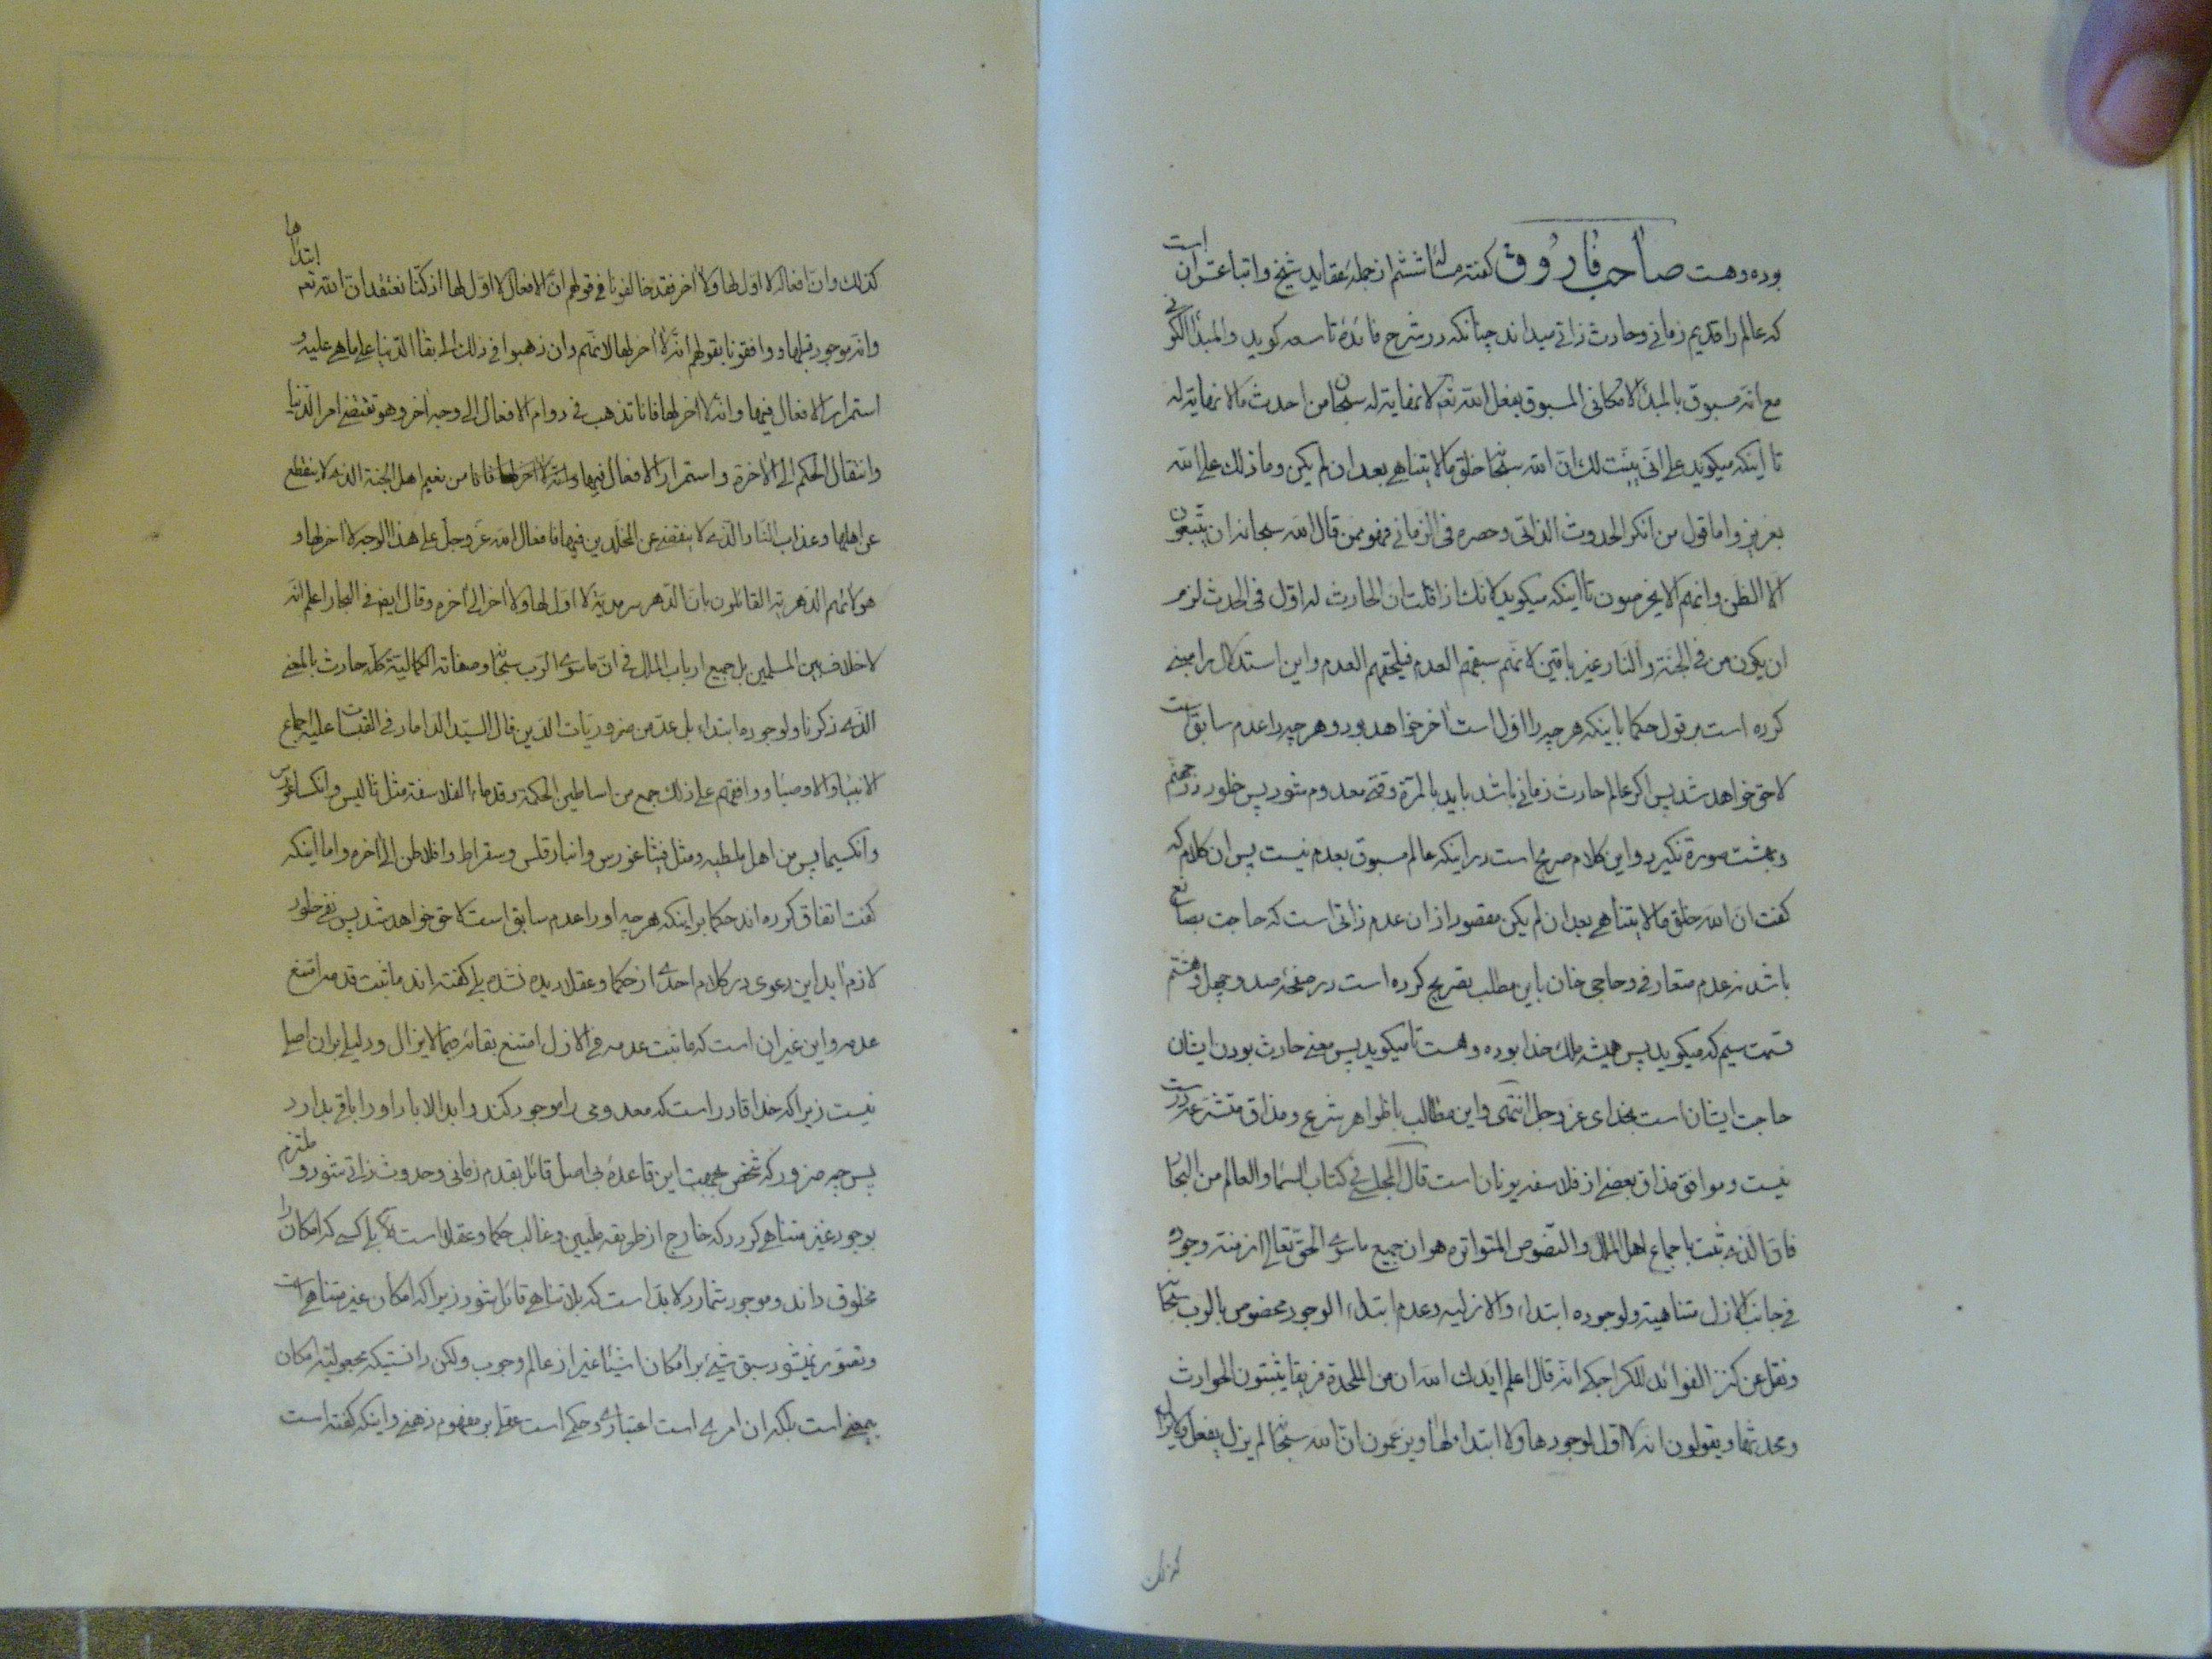 بوده و هست صاحب فاروق گفته مسئلهٔ ششم از جملهٔ عقاید شیخ و اتباعش آن است
که عالم را قدیم زمانی و حادث ذاتی میداند چنانکه در شرح فائدهٔ تاسعه گوید والمبدأ الکونی
مع انه مسبوق بالمبدأ الامکانی المسبوق بفعل الله تعه لا نهایة له سبحان من احدث مالا نهایة له
تا اینکه میگوید علی انی بینت لك ان الله سبحانه خلق مالا یتناهی بعد ان لم یکن وما ذلك علی الله
بعزیز و اما قول من انکر الحدوث الذاتی وحصره فی الزمانی فهو ممن قال الله سبحانه ان یتبعون
الا الظن وانهم الا یخرصون تا اینکه میگوید لانك اذا قلت ان الحادث له اول فی الحدث لزم
ان یکون من فی الجنة والنار غیر باقین لانهم سبقهم العدم فیلحقهم العدم واین استدلال را مبنی
کرده است بر قول حکما باینکه هر چه را اول است آخر خواهد بود و هر چه را عدم سابق است
لاحق خواهد شد پس اگر عالم حادث زمانی باشد باید بالمرة وقتی معدوم شود پس خلود در جهنم
و بهشت صورة نگیرد واین کلام صریح است در اینکه عالم مسبوق بعدم نیست پس ان کلام که
گفت ان الله خلق مالا یتناهی بعد ان لم یکن مقصود از ان عدم ذاتی است که حاجت بصانع
باشد نه عدم متعارفی و حاجی خان باین مطلب تصریح کرده است در صفحهٔ صد و چهل و هشتم
قسمت سیم که میگوید پس همیشه ملك خدا بوده و هست تا میگوید پس معنی حادث بودن ایشان
حاجت ایشان است بخدای عز وجل انتهی واین مطالب با ظواهر شرع و مذاق متشرعه درست
نیست و موافق مذاق بعضی از فلاسفه یونان است قال المجلسی فی کتاب السماء والعالم من البحار
فان الذی ثبت باجماع اهل الملل والنصوص المتواتره هو ان جمیع ماسوی الحق تعالی ازمنة وجوده
فی جانب الازل متناهیة ولوجوده ابتداء والازلیه وعدم ابتداء الوجود مخصوص بالرب سبحانه
ونقل عن کنز الفوائد للکراجکی انه قال اعلم ایدك الله ان من الملحدة فریقا یثبتون الحوادث
ومحدثها ویقولون انه لا اول لوجودها ولا ابتداء لها ویزعمون ان الله سبحانه لم یزل یفعل ولا یزال
کذلك
کذلك وان افعاله لا اول لها ولا آخر فقد خالفونا فی قولهم ان الافعال لا اول لها اذ کنا نعتقد ان الله تعه ابتداها
وانه موجود قبلها و وافقونا بقولهم انه لا آخر لها لانهم وان ذهبوا فی ذلك الی بقاء الدنیا علی ما هی علیه و
استمرار الافعال فیها وانه لا آخر لها فانا نذهب فی دوام الافعال الی وجه آخر وهو تقضی امر الدنیا
وانتقال الحکم الی الآخرة واستمرار الافعال فیها وانه لا آخر لها فانا من نعیم اهل الجنة الذی لا ینقطع
عن اهلها وعذاب النار الذی لا ینقضی عن المخلدین فیها فافعال الله عز وجل علی هذا الوجه لا آخر لها و
هولاء هم الدهریة القائلون بان الدهر سرمدیة لا اول لها ولا آخر الی آخره وقال ایضا فی البحار اعلم انه
لا خلاف بین المسلمین بل جمیع ارباب الملل فی ان ماسوی الرب سبحانه وصفاته الکمالیة کله حادث بالمعنی
الذی ذکرنا ولوجوده ابتداء بل عد من ضروریات الدین قال السید الداماد فی القبسات علیه اجماع
الانبیاء والاوصیاء و وافقهم علی ذلك جمع من اساطین الحکمة وقدماء الفلاسفة مثل ثالیس وانکساغورس
وانکسیمایس من اهل ملطیه ومثل فیثاغورس وانباذقلس وسقراط وافلاطن الی آخره و اما اینکه
گفت اتفاق کرده اند حکما بر اینکه هر چه او را عدم سابق است لاحق خواهد شد پس نفی خلود
لازم آید این دعوی در کلام احدی از حکما و عقلا دیده نشده بلی گفته اند ما ثبت قدمه امتنع
عدمه واین غیر ان است که ما ثبت عدمه فی الازل امتنع بقائه فیما لا یزال و دلیلی بر ان اصلا
نیست زیرا که خدا قادر است که معدومی را موجود کند و ابد الاباد او را باقی بدارد
پس چه ضرور که شخص بجهت این قاعدهٔ بی اصل قائل بقدم زمانی و حدوث ذاتی شود و ملتزم
بوجود غیر متناهی گردد که خارج از طریقه ملیین و غالب حکما و عقلا است بلی کسی که امکان را
مخلوق داند و موجود شمارد لابد است که بلا تناهی قائل شود زیرا که امکان غیر متناهی است
و تصور نمیشود سبق شیء بر امکان اشیاء غیر از عالم وجوب ولکن دانستیکه مجعولیة امکان
بیمعنی است بلکه ان امری است اعتباری و حکمی است عقلی بر مفهوم ذهنی و اینکه گفته است